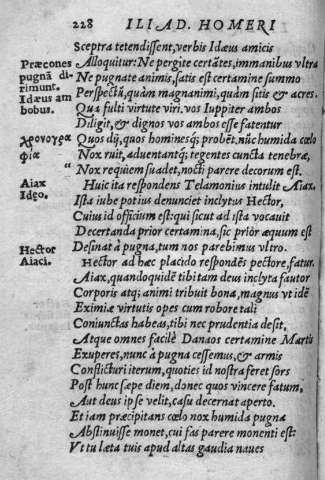 228 ILIAD. HOMERI
Sceptra tetendissent, verbis Idæus amicis
Præcones Alloquitur: Ne pergite certātes, immanibus vltra
pugnā di- Ne pugnate animis, satis est certamine summo
rimunt. Perspectū, quàm magnanimi, quàm sitis & acres.
Idæus am Qua fulti virtute viri, vos Iuppiter ambos
bobus. Diligit, & dignos vos ambos esse fatentur
χρονογρα Quos dij, quos homineśq; probēt, nūc humida cœlo
φία Nox ruit, aduentantq́; tegentes cuncta tenebræ,
“ Nox requiem suadet, nocti parere decorum est.
Aiax Huic ita respondens Telamonius intulit Aiax.
Idęo. Ista iube potius denunciet inclytus Hector,
Cuius id officium est: qui sicut ad ista vocauit
Decertanda prior certamina, sic priòr æquum est
Desinat à pugna, tum nos parebimus vltro.
Hector Hector ad hæc placido respondēs pectore, fatur.
Aiaci. Aiax, quandoquidē tibi tam deus inclyta fautor
Corporis atq; animi tribuit bona, magnus vt idē
Eximiæ virtutis opes cum robore tali
Coniunctas habeas, tibi nec prudentia desit,
Atque omnes facilè Danaos certamine Martis
Exuperes, nunc à pugna cessemus, & armis
Conflicturi iterum, quoties id nostra feret sors
Post hunc sæpe diem, donec quos vincere fatum,
Aut deus ipse velit, casu decernat aperto.
Et iam præcipitans cœlo nox humida pugna
Abstinuisse monet, cui fas parere monenti est:
Vt tu læta tuis apud altas gaudia naues